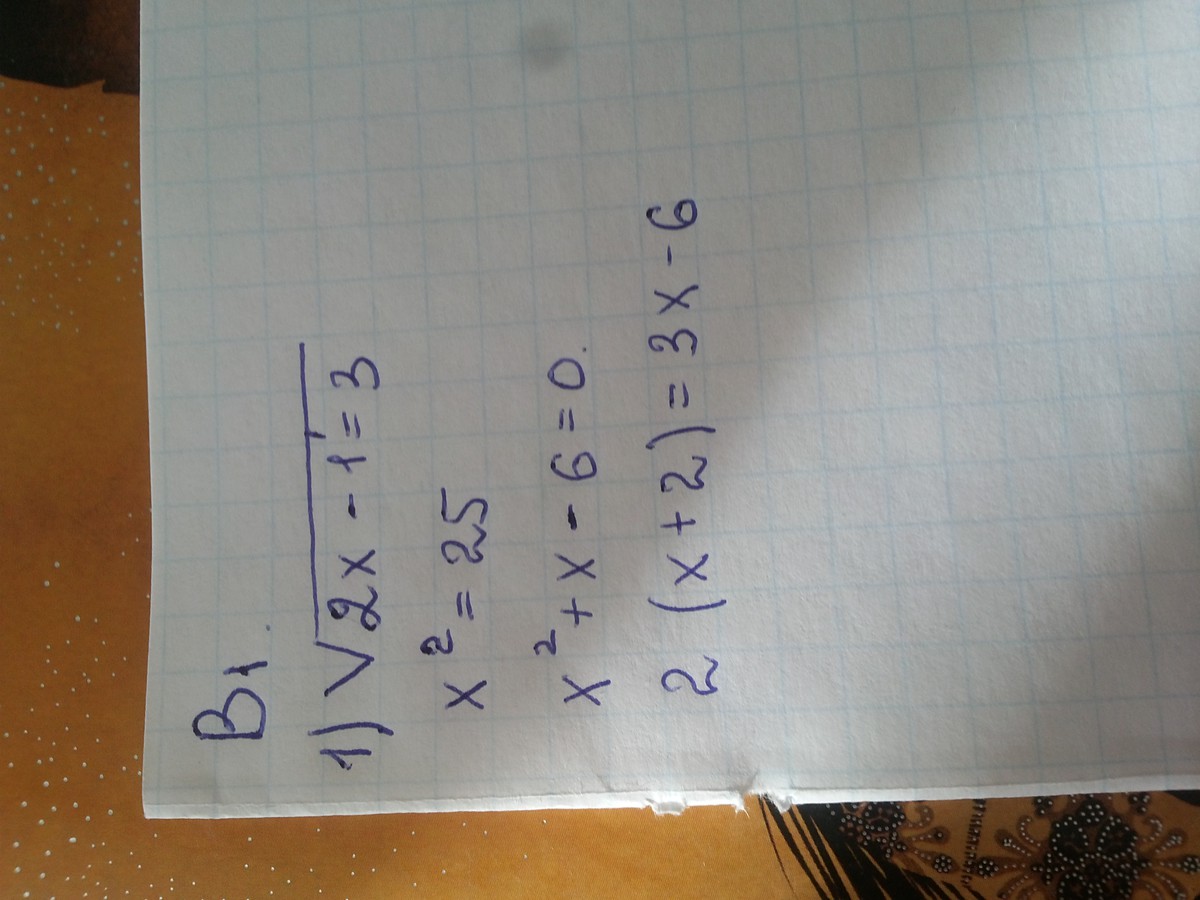 В1.
1) √2x - 1 = 3
x² = 25
x² + x - 6 = 0.
2 (x + 2) = 3x - 6